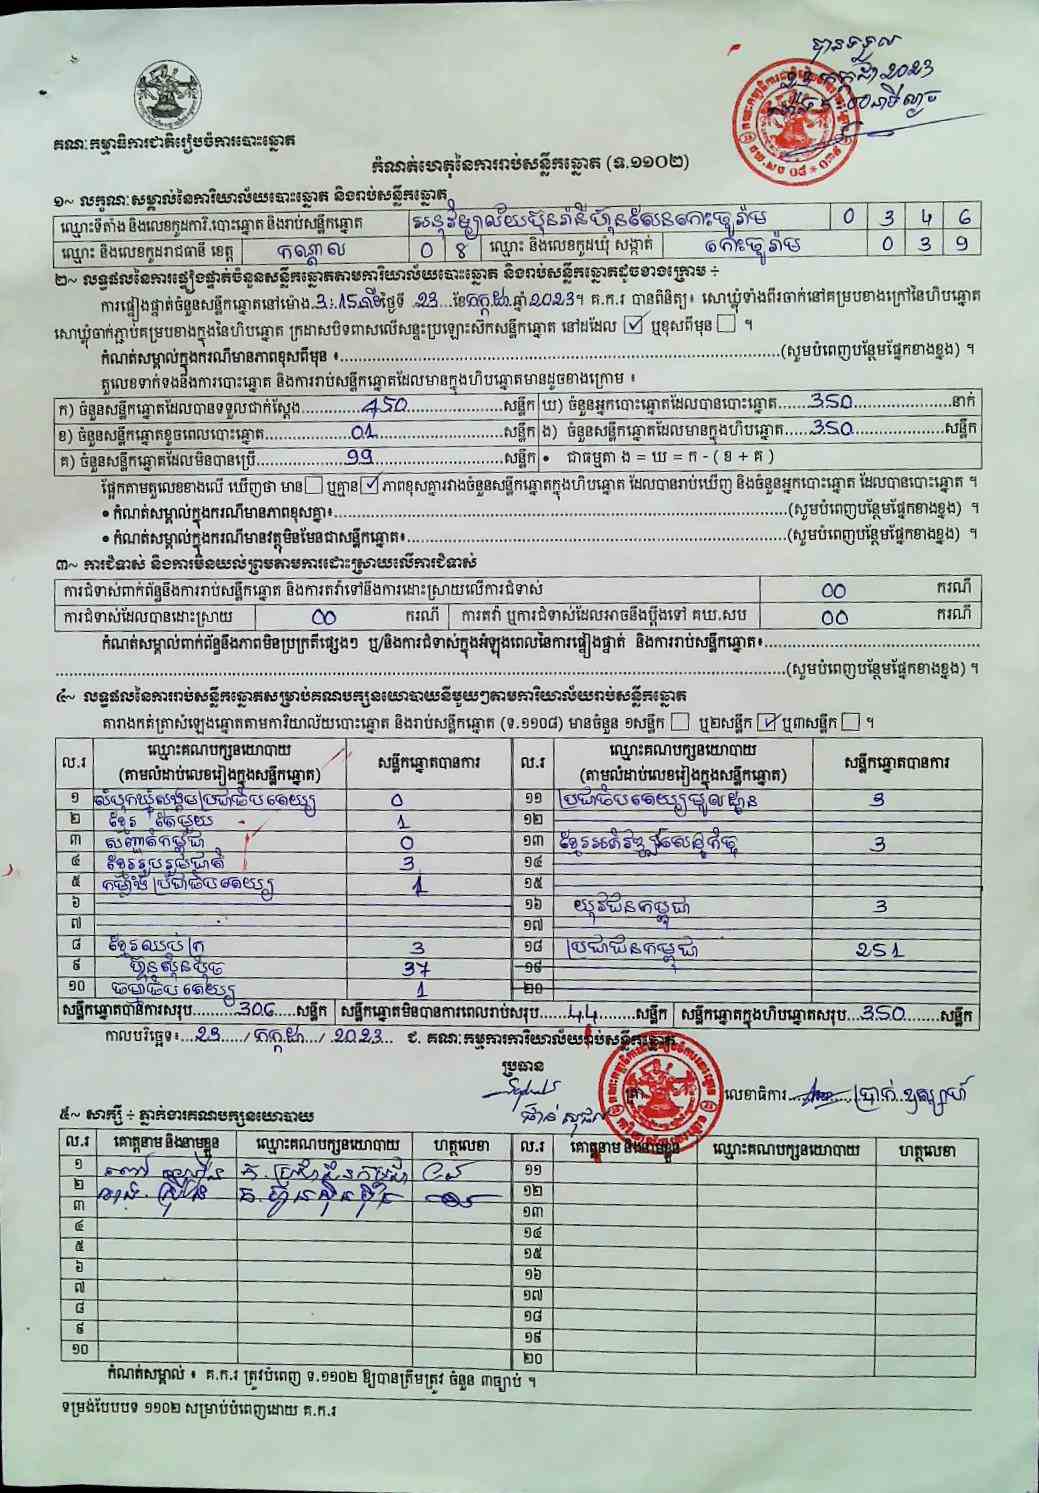 បានទទួល
២៤ កក្កដា 2023
គណៈកម្មាធិការជាតិរៀបចំការបោះឆ្នោត
កំណត់ហេតុនៃការរាប់សន្លឹកឆ្នោត (ទ.១១០២)
១~ លក្ខណៈសម្គាល់នៃការិយាល័យបោះឆ្នោត និងរាប់សន្លឹកឆ្នោត
ឈ្មោះទីតាំង និងលេខកូដការិ.បោះឆ្នោត និងរាប់សន្លឹកឆ្នោត អនុវិទ្យាល័យប៊ុនរ៉ានីហ៊ុនសែនកោះចូរ៉ាម 0 3 4 6
ឈ្មោះ និងលេខកូដរាជធានី ខេត្ត កណ្តាល 0 8 ឈ្មោះ និងលេខកូដឃុំ សង្កាត់ កោះចូរ៉ាម 0 3 9
២~ លទ្ធផលនៃការផ្ទៀងផ្ទាត់ចំនួនសន្លឹកឆ្នោតតាមការិយាល័យបោះឆ្នោត និងរាប់សន្លឹកឆ្នោតដូចខាងក្រោម ÷
ការផ្ទៀងផ្ទាត់ចំនួនសន្លឹកឆ្នោតនៅម៉ោង 3:15នាទី ថ្ងៃទី 23 ខែកក្កដា ឆ្នាំ2023។ គ.ក.រ បានពិនិត្យ៖ សោឃ្លុំទាំងពីរចាក់នៅគម្របខាងក្រៅនៃហិបឆ្នោត
សោឃ្លុំចាក់ភ្ជាប់គម្របខាងក្នុងនៃហិបឆ្នោត ក្រដាសបិទពាសលើសន្ទះប្រឡោះស៊កសន្លឹកឆ្នោត នៅដដែល ☑ ឬខុសពីមុន ☐ ។
កំណត់សម្គាល់ក្នុងករណីមានភាពខុសពីមុន ៖..........(សូមបំពេញបន្ថែមផ្នែកខាងខ្នង) ។
តួលេខទាក់ទងនឹងការបោះឆ្នោត និងការរាប់សន្លឹកឆ្នោតដែលមានក្នុងហិបឆ្នោតមានដូចខាងក្រោម ៖
ក) ចំនួនសន្លឹកឆ្នោតដែលបានទទួលជាក់ស្តែង 450 សន្លឹក ឃ) ចំនួនអ្នកបោះឆ្នោតដែលបានបោះឆ្នោត 350 នាក់
ខ) ចំនួនសន្លឹកឆ្នោតខូចពេលបោះឆ្នោត 01 សន្លឹក ង) ចំនួនសន្លឹកឆ្នោតដែលមានក្នុងហិបឆ្នោត 350 សន្លឹក
គ) ចំនួនសន្លឹកឆ្នោតដែលមិនបានប្រើ 99 សន្លឹក • ជាធម្មតា ង = ឃ = ក - ( ខ + គ )
ផ្អែកតាមតួលេខខាងលើ ឃើញថា មាន ☐ ឬគ្មាន ☑ ភាពខុសគ្នារវាងចំនួនសន្លឹកឆ្នោតក្នុងហិបឆ្នោត ដែលបានរាប់ឃើញ និងចំនួនអ្នកបោះឆ្នោត ដែលបានបោះឆ្នោត ។
• កំណត់សម្គាល់ក្នុងករណីមានភាពខុសគ្នា៖..........(សូមបំពេញបន្ថែមផ្នែកខាងខ្នង) ។
• កំណត់សម្គាល់ក្នុងករណីមានវត្ថុមិនមែនជាសន្លឹកឆ្នោត៖..........(សូមបំពេញបន្ថែមផ្នែកខាងខ្នង) ។
៣~ ការជំទាស់ និងការមិនយល់ព្រមតាមការដោះស្រាយលើការជំទាស់
ការជំទាស់ពាក់ព័ន្ធនឹងការរាប់សន្លឹកឆ្នោត និងការតវ៉ាទៅនឹងការដោះស្រាយលើការជំទាស់ 00 ករណី
ការជំទាស់ដែលបានដោះស្រាយ 00 ករណី ការតវ៉ា ឬការជំទាស់ដែលអាចនឹងប្តឹងទៅ គឃ.សប 00 ករណី
កំណត់សម្គាល់ពាក់ព័ន្ធនឹងភាពមិនប្រក្រតីផ្សេងៗ ឬ/និងការជំទាស់ក្នុងអំឡុងពេលនៃការផ្ទៀងផ្ទាត់ និងការរាប់សន្លឹកឆ្នោត៖..........
..........(សូមបំពេញបន្ថែមផ្នែកខាងខ្នង) ។
៤~ លទ្ធផលនៃការរាប់សន្លឹកឆ្នោតសម្រាប់គណបក្សនយោបាយនីមួយៗតាមការិយាល័យរាប់សន្លឹកឆ្នោត
តារាងកត់ត្រាសំឡេងឆ្នោតតាមការិយាល័យបោះឆ្នោត និងរាប់សន្លឹកឆ្នោត (ទ.១១០៨) មានចំនួន ១សន្លឹក ☐ ឬ២សន្លឹក ☑ ឬ៣សន្លឹក ☐ ។
ល.រ ឈ្មោះគណបក្សនយោបាយ សន្លឹកឆ្នោតបានការ ល.រ ឈ្មោះគណបក្សនយោបាយ សន្លឹកឆ្នោតបានការ
(តាមលំដាប់លេខរៀងក្នុងសន្លឹកឆ្នោត) (តាមលំដាប់លេខរៀងក្នុងសន្លឹកឆ្នោត)
១ សំបុកឃ្មុំសង្គមប្រជាធិបតេយ្យ 0 ១១ ប្រជាធិបតេយ្យមូលដ្ឋាន 3
២ ខ្មែរតែមួយ 1 ១២
៣ សញ្ជាតិកម្ពុជា 0 ១៣ ខ្មែរអភិវឌ្ឍន៍សេដ្ឋកិច្ច 3
៤ ខ្មែររួបរួមជាតិ 3 ១៤
៥ កម្លាំងប្រជាធិបតេយ្យ 1 ១៥
៦ ១៦ យុវជនកម្ពុជា 3
៧ ១៧
៨ ខ្មែរឈប់ក្រ 3 ១៨ ប្រជាជនកម្ពុជា 251
៩ ហ៊្វុនស៊ិនប៉ិច 37 ១៩
១០ ធម្មាធិបតេយ្យ 1 ២០
សន្លឹកឆ្នោតបានការសរុប 306 សន្លឹក សន្លឹកឆ្នោតមិនបានការពេលរាប់សរុប 44 សន្លឹក សន្លឹកឆ្នោតក្នុងហិបឆ្នោតសរុប 350 សន្លឹក
កាលបរិច្ឆេទ៖ 23 / កក្កដា / 2023 ជ. គណៈកម្មការការិយាល័យរាប់សន្លឹកឆ្នោត
ប្រធាន
ត្រា លេខាធិការ
៥~ សាក្សី ÷ ភ្នាក់ងារគណបក្សនយោបាយ
ល.រ គោត្តនាម និងនាមខ្លួន ឈ្មោះគណបក្សនយោបាយ ហត្ថលេខា ល.រ គោត្តនាម និងនាមខ្លួន ឈ្មោះគណបក្សនយោបាយ ហត្ថលេខា
១ គ.ប្រជាជនកម្ពុជា ១១
២ គ.ហ៊្វុនស៊ិនប៉ិច ១២
៣ ១៣
៤ ១៤
៥ ១៥
៦ ១៦
៧ ១៧
៨ ១៨
៩ ១៩
១០ ២០
កំណត់សម្គាល់ ៖ គ.ក.រ ត្រូវបំពេញ ទ.១១០២ ឱ្យបានត្រឹមត្រូវ ចំនួន ៣ច្បាប់ ។
ទម្រង់បែបបទ ១១០២ សម្រាប់បំពេញដោយ គ.ក.រ